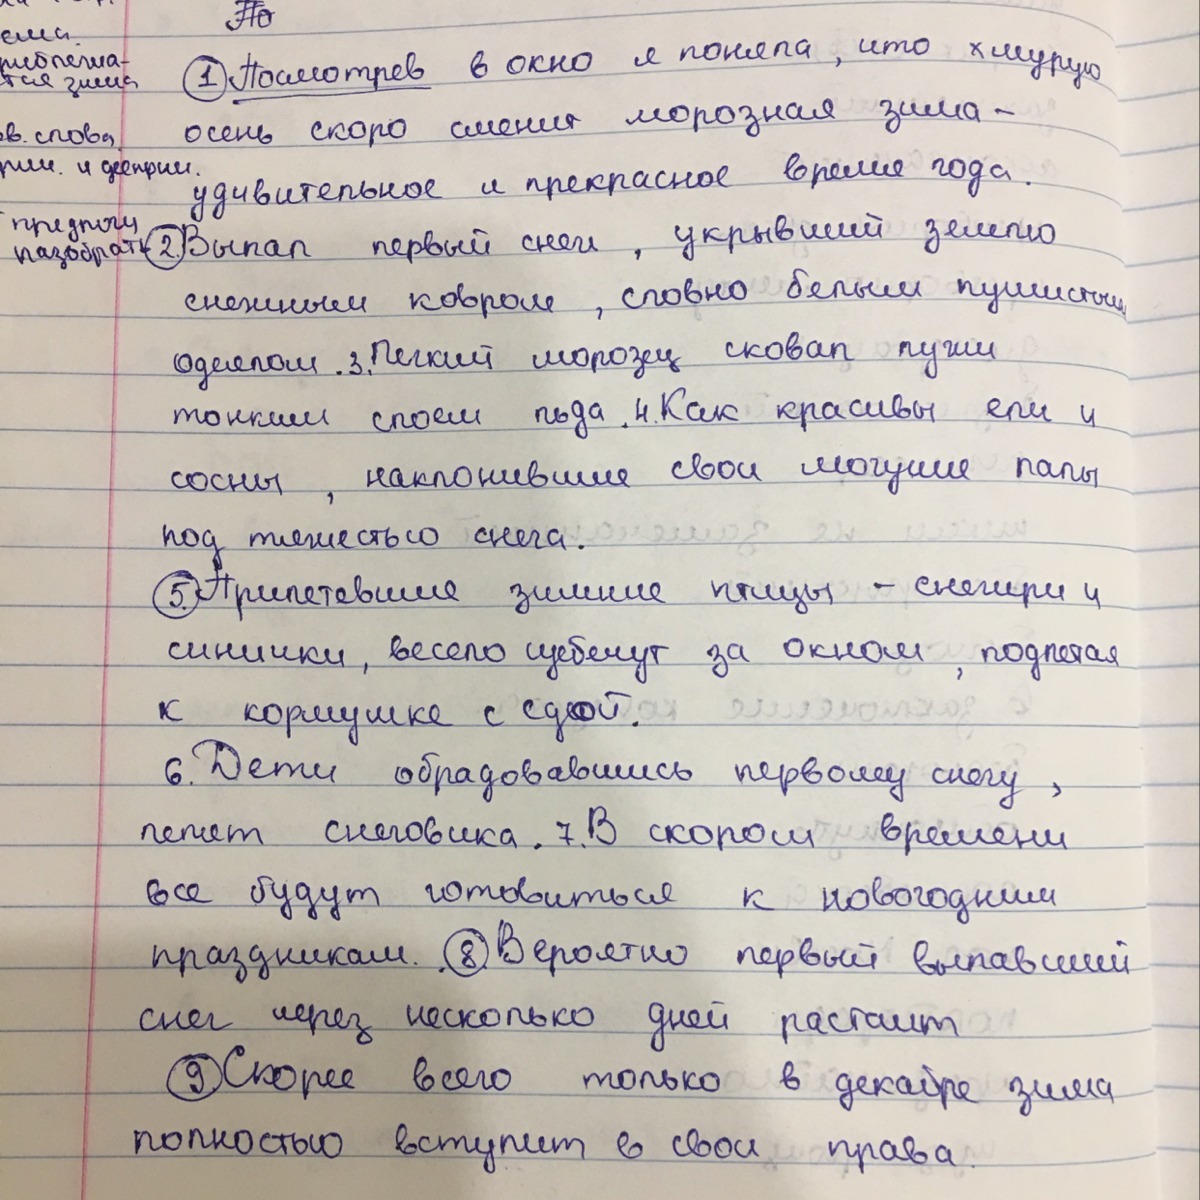 По
ема.
приближа-
тся зима
1 Посмотрев в окно я поняла, что хмурую
осень скоро сменит морозная зима –
ов. слова
удивительное и прекрасное время года.
прич. и дееприч.
предлож
разобрать
2. Выпал первый снег, укрывший землю
снежным ковром, словно белым пушистым
одеялом. 3. Легкий морозец сковал лужи
тонким слоем льда. 4. Как красивы ели и
сосны, наклонившие свои могучие лапы
под тяжестью снега.
5. Прилетевшие зимние птицы – снегири и
синички, весело щебечут за окном, подлетая
к кормушке с едой.
6. Дети обрадовавшись первому снегу,
лепят снеговика. 7. В скором времени
все будут готовиться к новогодним
праздникам. 8. Вероятно первый выпавший
снег через несколько дней растает
9 Скорее всего только в декабре зима
полностью вступит в свои права.